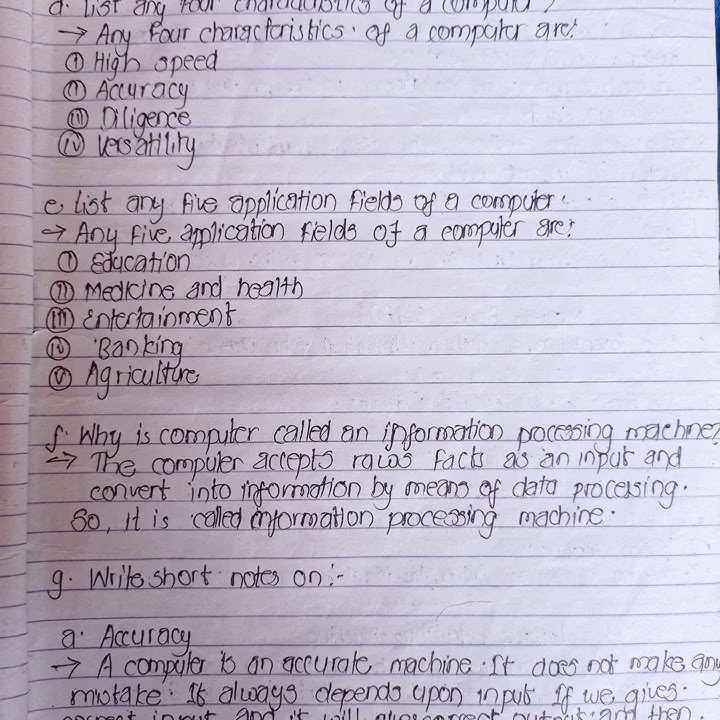 d. List any four characteristics of a computer?
→ Any four characteristics. of a computer are:
(i) High speed
(ii) Accuracy
(iii) Diligence
(iv) Versatility
e. List any five application fields of a computer.
→ Any five application fields of a computer are:
(i) Education
(ii) Medicine and health
(iii) Entertainment
(iv) Banking
(v) Agriculture
f. Why is computer called an information processing machine?
→ The computer accepts raws facts as an input and
convert into information by means of data processing.
So, it is called information processing machine.
g. Write short notes on:-
a. Accuracy
→ A computer is an accurate machine. It does not make any
mistake. It always depends upon input. If we gives.
correct input and it will output and then